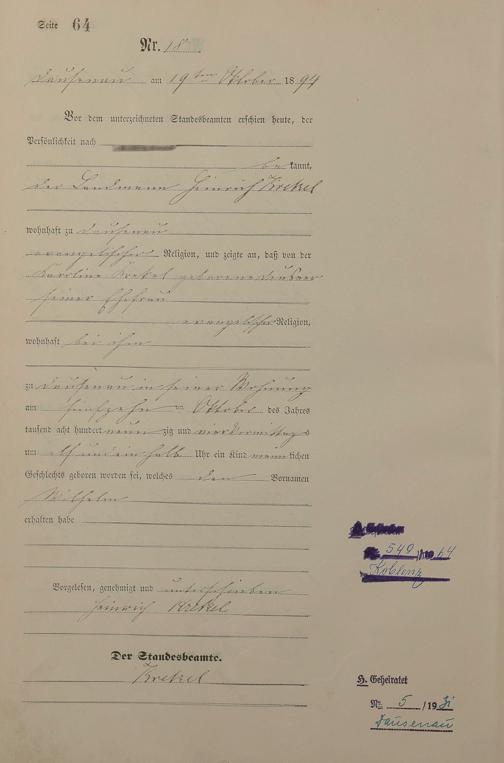 Seite 64
Nr. 18
Dausenau am 19ten Oktober 1894
Vor dem unterzeichneten Standesbeamten erschien heute, der
Persönlichkeit nach
be kannt,
der Landmann Heinrich Krekel
wohnhaft zu Dausenau
evangelischer Religion, und zeigte an, daß von der
Karoline Krekel geborene
seiner Ehefrau
evangelischer Religion,
wohnhaft bei ihm
zu Dausenau in seiner Wohnung
am fünfzehn Oktober des Jahres
tausend acht hundert neun zig und vier Vormittags
um elf und ein halb Uhr ein Kind männlichen
Geschlechts geboren worden sei, welches den Vornamen
Wilhelm
erhalten habe
Vorgelesen, genehmigt und unterschrieben
Heinrich Krekel
Der Standesbeamte.
Krekel
Nr. 549 /19 64
Koblenz
H. Geheiratet
Nr. 5 /19 31
Dausenau